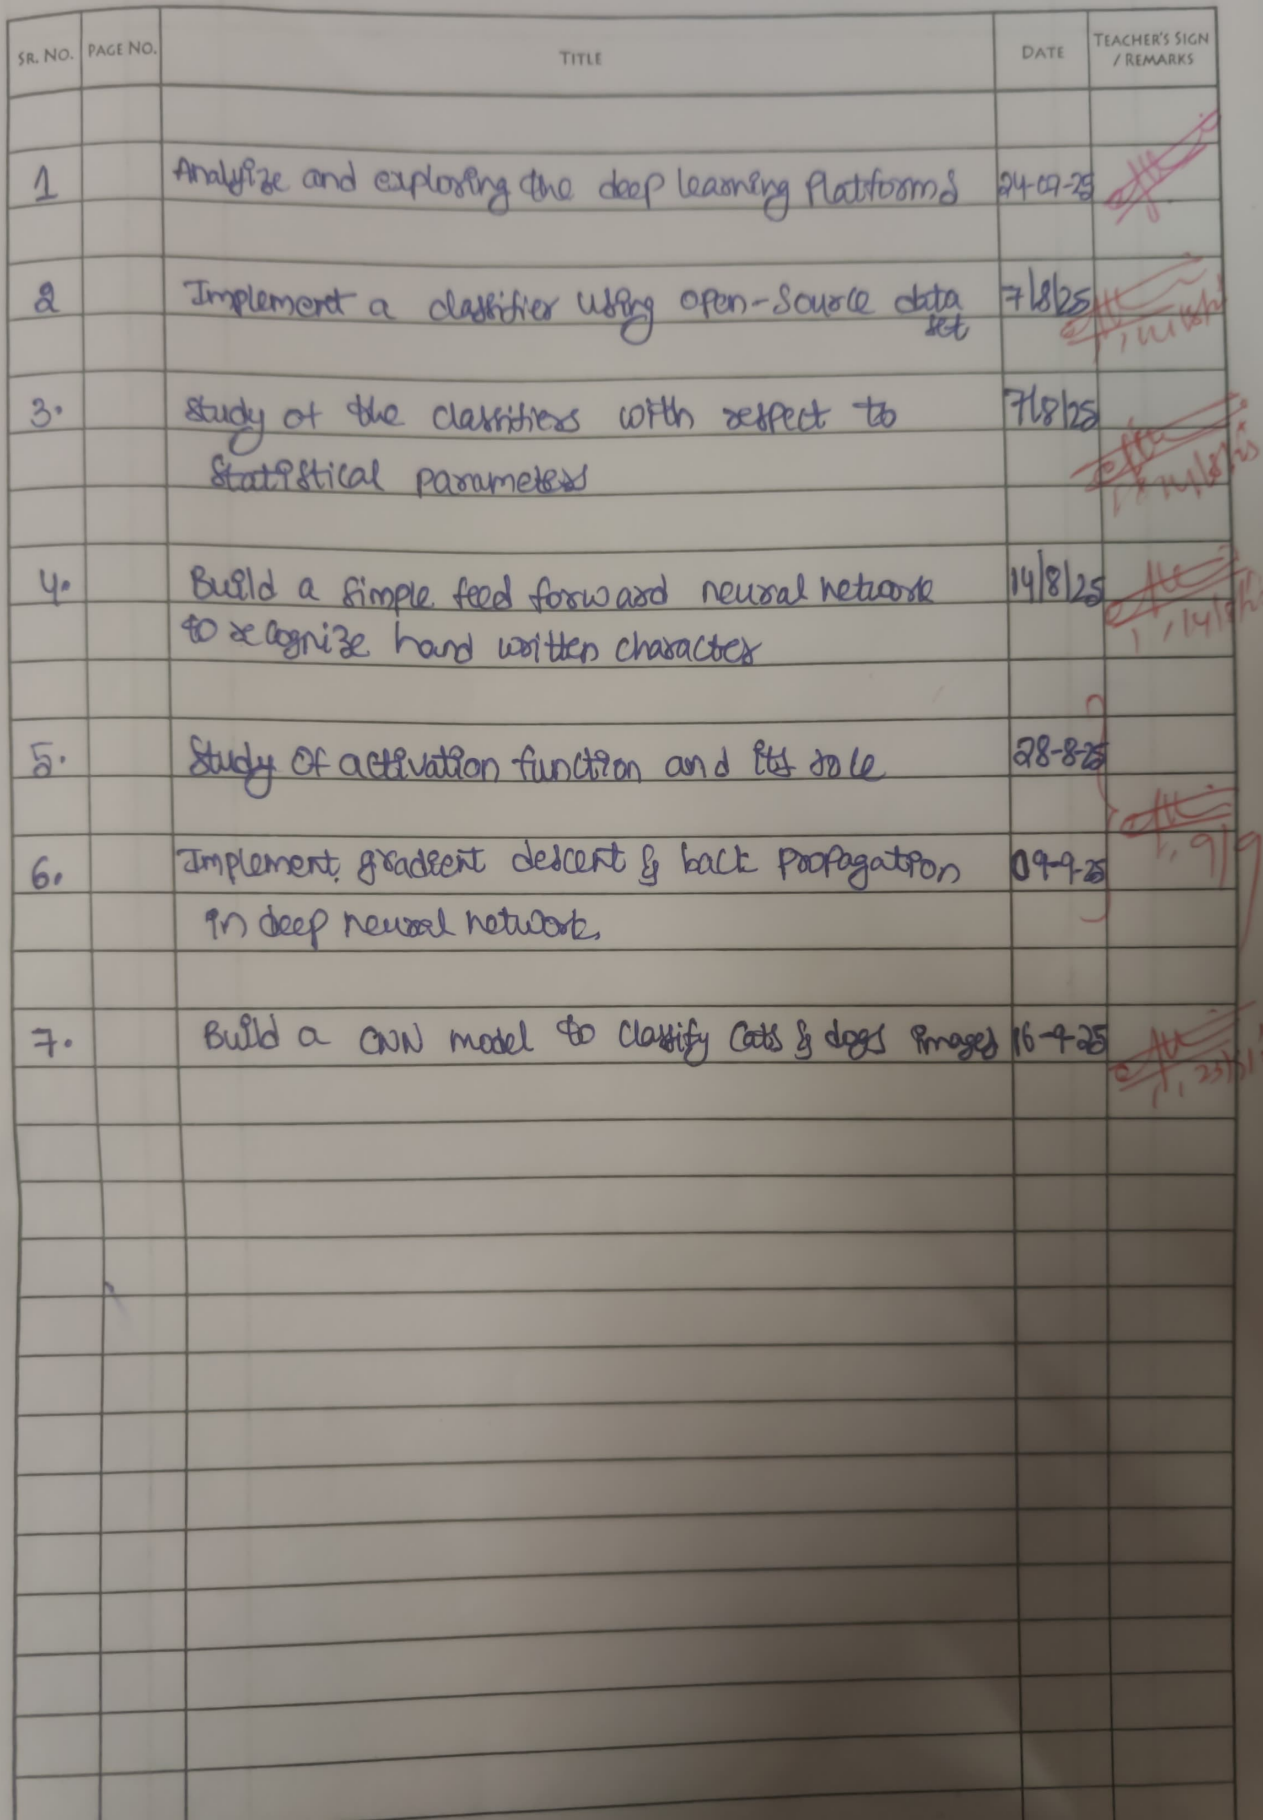 SR. NO. PAGE NO. TITLE DATE TEACHER'S SIGN / REMARKS
1 Analyize and exploring the deep learning Platforms 24-07-25
2 Implement a classifier using open-source data 7/8/25
set
3. Study of the classifiers with respect to 7/8/25
Statistical parameters
4. Build a simple feed forward neural network 14/8/25
to recognize hand written character
5. Study of activation function and its role 28-8-25
6. Implement gradient descent & back propagation 09-9-25
in deep neural network.
7. Build a CNN model to classify cats & dogs images 16-9-25